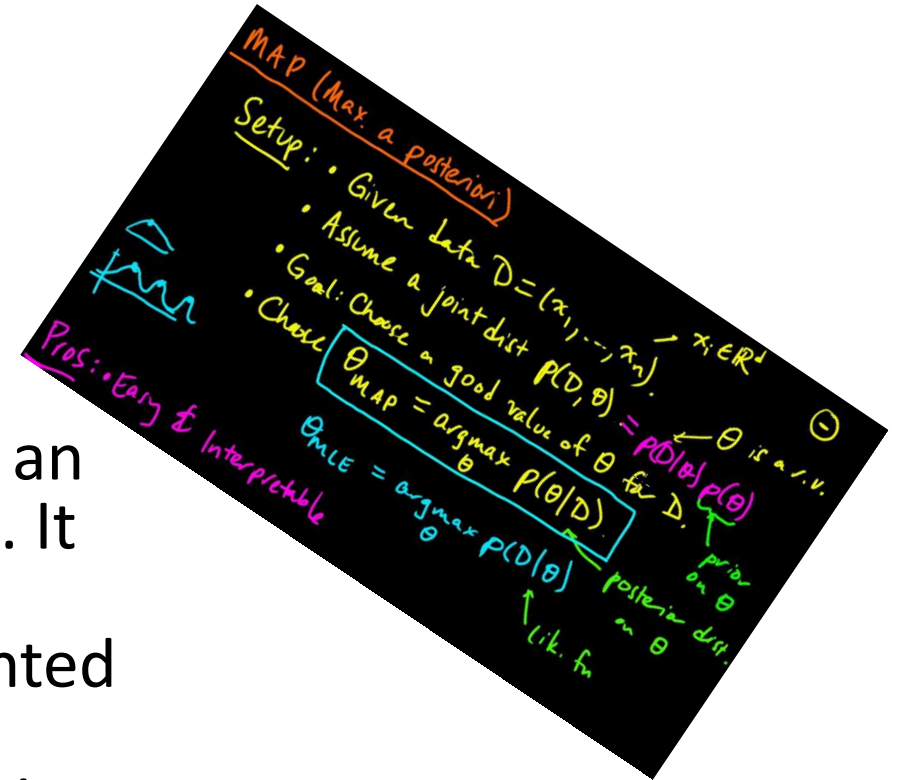 MAP (Max. a posteriori)
Setup: • Given data D = (x₁, ..., xₙ). xᵢ ∈ ℝᵈ
• Assume a joint dist p(D, θ) = p(D|θ) p(θ) θ is a r.v.
prior
on θ
• Goal: Choose a good value of θ for D.
• Choose θ_MAP = argmax_θ p(θ|D).
posterior dist.
on θ
θ_MLE = argmax_θ p(D|θ)
lik. fn
Pros: • Easy & Interpretable
an
. It
nted